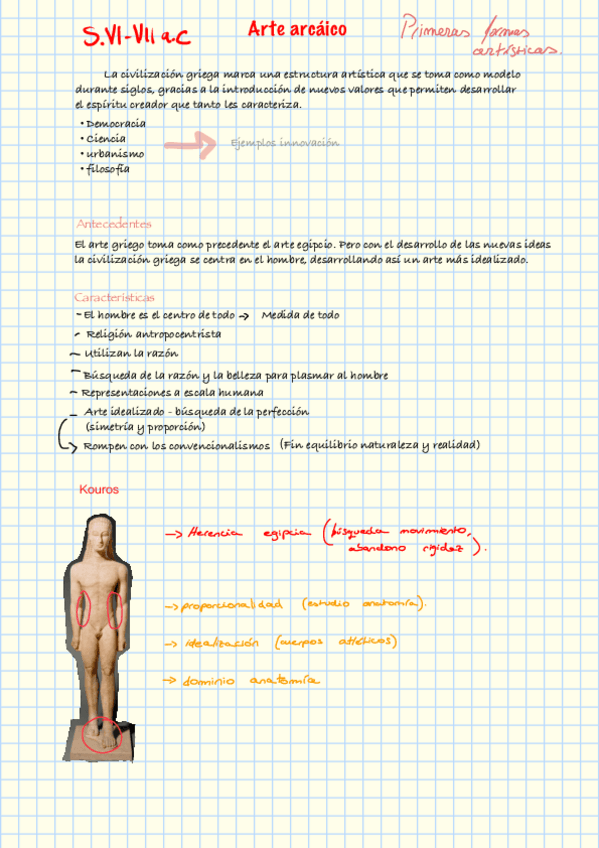 S.VI-VII a.C
Arte arcáico
Primeras formas
artísticas.
La civilización griega marca una estructura artística que se toma como modelo
durante siglos, gracias a la introducción de nuevos valores que permiten desarrollar
el espíritu creador que tanto les caracteriza.
• Democracia
• Ciencia
• urbanismo
• filosofía
Ejemplos innovación
Antecedentes
El arte griego toma como precedente el arte egipcio. Pero con el desarrollo de las nuevas ideas
la civilización griega se centra en el hombre, desarrollando así un arte más idealizado.
Características
- El hombre es el centro de todo → Medida de todo
- Religión antropocentrista
- Utilizan la razón
- Búsqueda de la razón y la belleza para plasmar al hombre
- Representaciones a escala humana
- Arte idealizado - búsqueda de la perfección
(simetría y proporción)
→ Rompen con los convencionalismos (Fin equilibrio naturaleza y realidad)
Kouros
→ Herencia egipcia (búsqueda movimiento,
abandono rigidez).
→ proporcionalidad (estudio anatomía).
→ idealización (cuerpos atléticos)
→ dominio anatomía